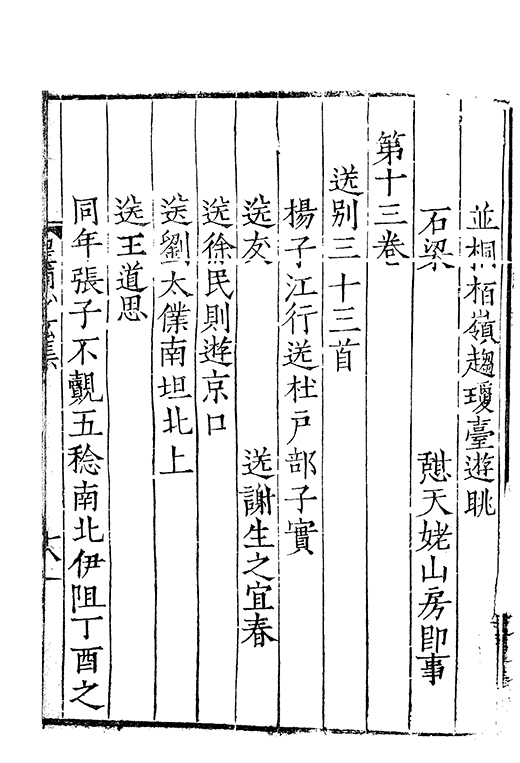 並桐栢嶺趨瓊臺遊眺
石梁　憇天姥山房即事
第十三卷
送别三十三首
楊子江行送杜戸部子實
送友　送謝生之宜春
送徐民則遊京口
送劉太僕南坦北上
送王道思
同年張子不覿五稔南北伊阻丁酉之